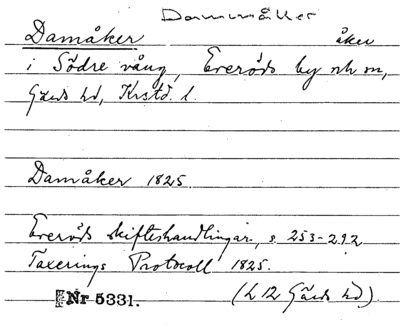 Dammåker
Damåker åker
i Södre vång, Everöds by och sn,
Gärds hd, Krstd. l.
Damåker 1825.
Everöds skifteshandlingar, s. 253-292
Taxerings Protocoll 1825.
Nr 5331. (L 12 Gärds hd).